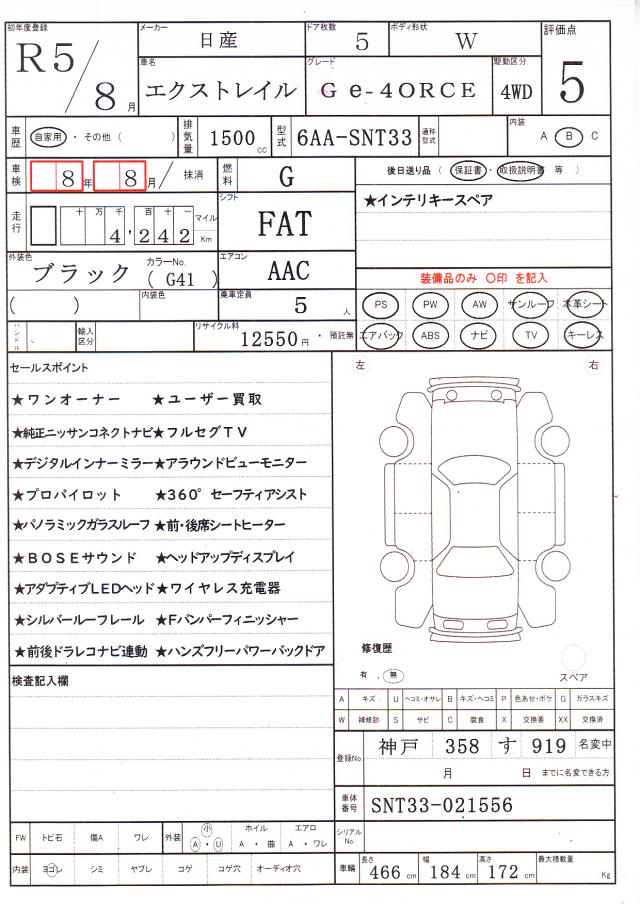 初年度登録 R5/8月
メーカー 日産
ドア枚数 5
ボディ形状 W
評価点 5
車名 エクストレイル
グレード G e-4ORCE
駆動区分 4WD
車歴 自家用・その他( )
排気量 1500cc
型式 6AA-SNT33
通称型式
内装 A・B C
車検 8年 8月/ 抹消
燃料 G
後日送り品(保証書・取扱説明書 等)
★インテリキースペア
走行 十万千百十一 4,242 マイル Km
シフト FAT
外装色 ブラック
カラーNo. (G41)
エアコン AAC
装備品のみ 〇印 を記入
( )
内装色
乗車定員 5人
PS PW AW サンルーフ 本革シート
ハンドル
輸入区分
リサイクル料 12550円・預託無
エアバック ABS ナビ TV キーレス
セールスポイント
左 右
★ワンオーナー ★ユーザー買取
★純正ニッサンコネクトナビ★フルセグTV
★デジタルインナーミラー★アラウンドビューモニター
★プロパイロット ★360°セーフティアシスト
★パノラミックガラスルーフ★前・後席シートヒーター
★BOSEサウンド ★ヘッドアップディスプレイ
★アダプティブLEDヘッド★ワイヤレス充電器
★シルバールーフレール ★Fバンパーフィニッシャー
★前後ドラレコナビ連動 ★ハンズフリーパワーバックドア
修復歴
有 . 無
スペア
検査記入欄
A キズ U ヘコミ・オサレ B キズ・ヘコミ P 色あせ・ボケ G ガラスキズ
W 補修跡 S サビ C 腐食 X 交換要 XX 交換済
登録No. 神戸 358 す 919 名変中
月 日 までに名変できる方
車体番号 SNT33-021556
シリアルNo.
FW トビ石 傷A ワレ 外装 小 A・U ホイル A・曲 エアロ A・ワレ
内装 ヨゴレ シミ ヤブレ コゲ コゲ穴 オーディオ穴
車輛 長さ 466cm 幅 184cm 高さ 172cm 最大積載量 Kg